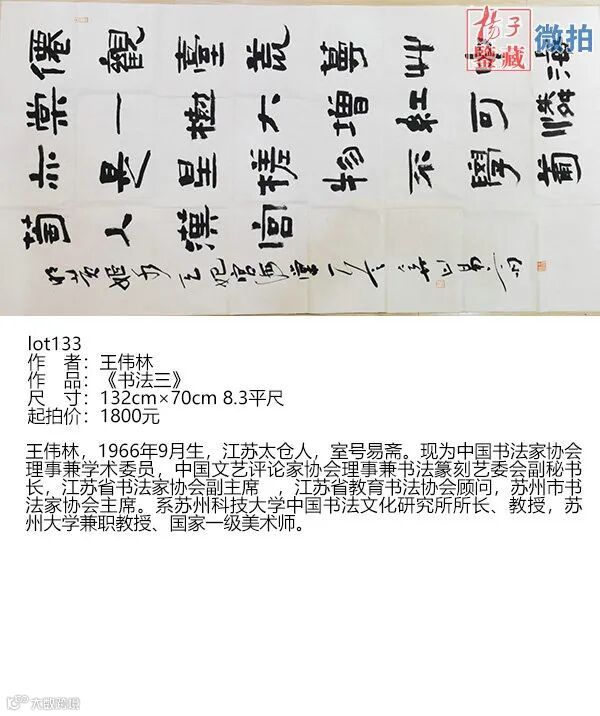 僊觀臺荒蔓艸中海
棠一樹大增紅可憐
亦是星槎物不學葡
萄入漢宮
黃姬水 宮海棠一
揚子
鑒藏
微拍
lot133
作　者：王伟林
作　品：《书法三》
尺　寸：132cm×70cm 8.3平尺
起拍价：1800元
王伟林，1966年9月生，江苏太仓人，室号易斋。现为中国书法家协会
理事兼学术委员，中国文艺评论家协会理事兼书法篆刻艺委会副秘书
长，江苏省书法家协会副主席　，江苏省教育书法协会顾问，苏州市书
法家协会主席。系苏州科技大学中国书法文化研究所所长、教授，苏
州大学兼职教授、国家一级美术师。
大数跨境